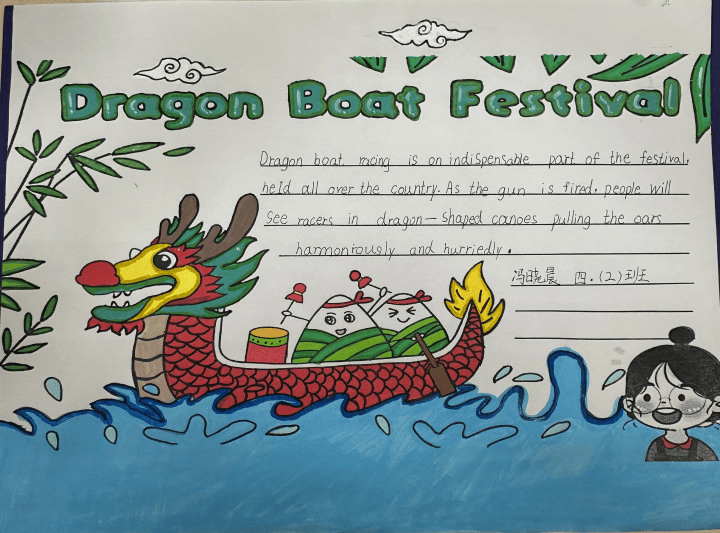 Dragon Boat Festival
Dragon boat racing is an indispensable part of the festival,
held all over the country. As the gun is fired, people will
see racers in dragon-shaped canoes pulling the oars
harmoniously and hurriedly.
冯晓晨 四.(2)班